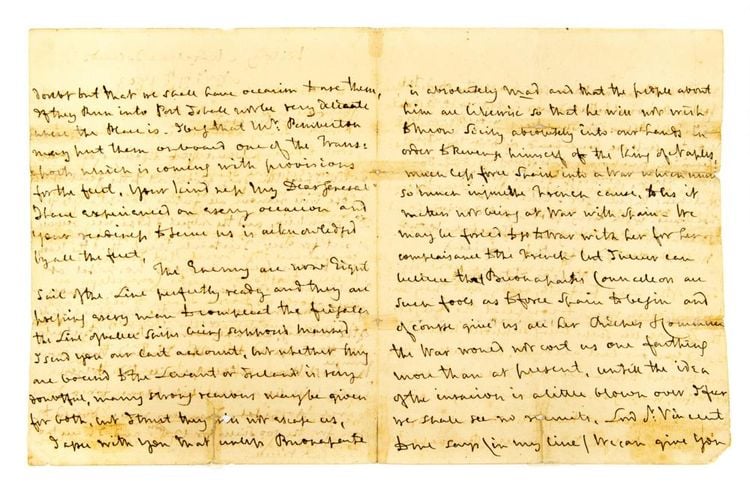 doubt but that we shall have occasion to use them,
if they Run into Port I shall not be very delicate
where the Place is. I beg that Mr. Pemberton
may put them onboard one of the Trans=
ports which is coming with provisions
for the fleet. Your kindness My Dear General
I have experienced on every occasion and
your readiness to serve us is acknowledged
by all the fleet.
The Enemy are now Eight
Sail of the Line perfectly ready and they are
pressing every man to compleat the frigates
the Line of Battle Ships being supposed Manned
I send you our last account, but whether they
are bound to the Levant or Ireland is very
doubtful, many strong reasons may be given
for both, but I trust they will not escape us,
I agree with you that unless Buonaparte
is absolutely mad and that the people about
him are likewise so that he will not wish
to throw Sicily absolutely into our hands in
order to Revenge himself of the King of Naples,
much less force Spain into a War which must
so much injure the French cause, to us it
matters not being at War with Spain. We
may be forced to go to War with her for her
complaisance to the French but I never can
believe that Buonaparte's Councelors are
such fools as to force Spain to begin and
of course give us all her Riches &
the War would not cost us one farthing
more than at present, untill the idea
of the invasion is a little blown over I fear
we shall see no recruits, Lord St. Vincent
to me says (in my line) We can give you